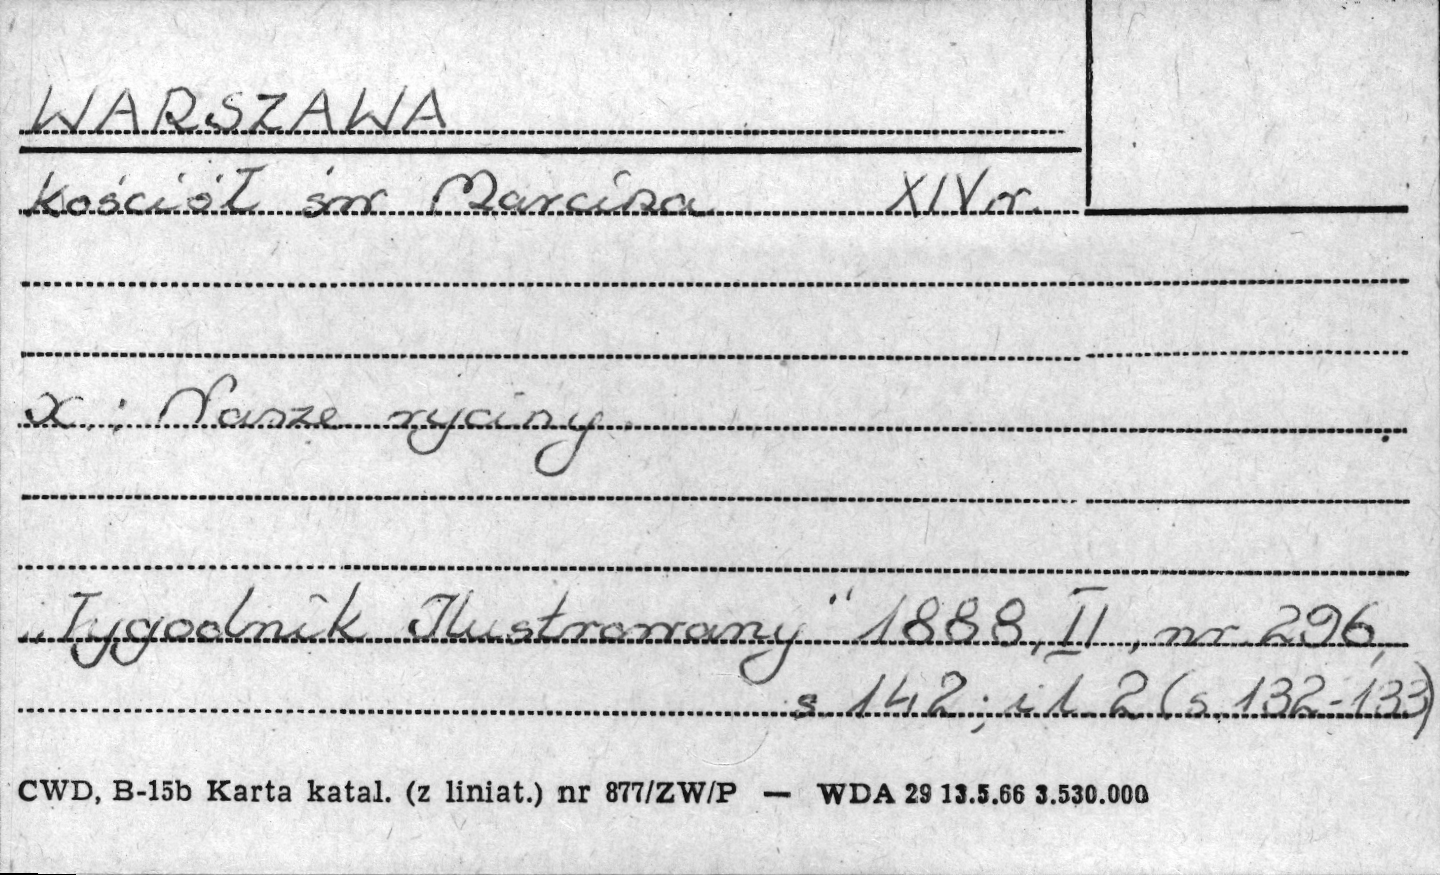 WARSZAWA
kościół św Marcina XIV w.
x.: Nasze ryciny.
„Tygodnik Ilustrowany" 1888, II, nr 296,
s. 142; il. 2 (s. 132-133)
CWD, B-15b Karta katal. (z liniat.) nr 877/ZW/P — WDA 29 13.5.66 3.530.000